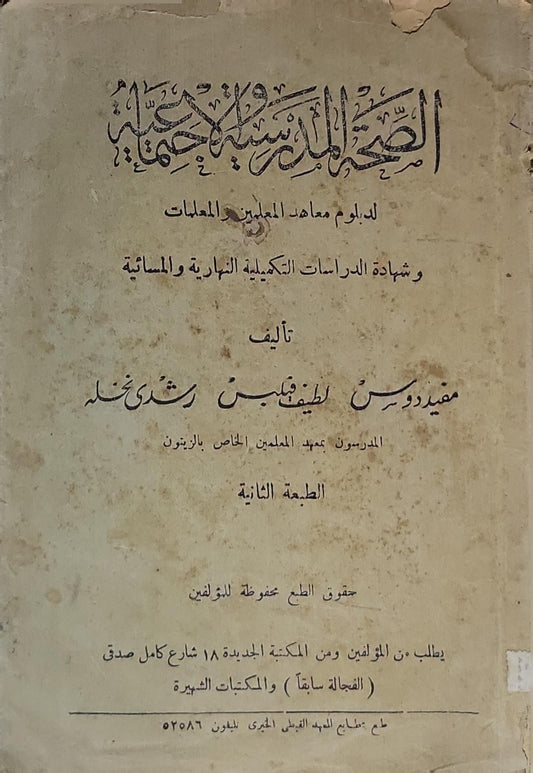 الصِّحة المدرسية والاجتماعيَّة
لدبلوم معاهد المعلمين والمعلمات
وشهادة الدراسات التكميلية النهارية والمسائية
تأليف
مفيد دوس لطيف فيلبس رشدى نخله
المدرسون بمعهد المعلمين الخاص بالزيتون
الطبعة الثانية
حقوق الطبع محفوظة للمؤلفين
يطلب من المؤلفين ومن المكتبة الجديدة ١٨ شارع كامل صدقى
( الفجالة سابقاً ) والمكتبات الشهيرة
طبع بمطابع المعهد القبطى الخيرى تليفون ٥٢٥٨٦